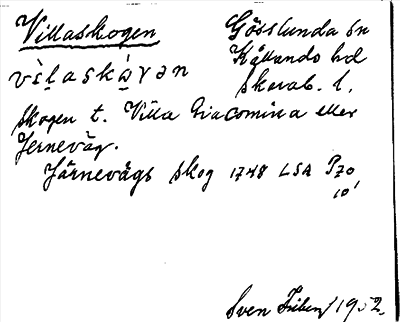 Villaskogen
Gösslunda sn
Kållands hd
Skarab. l.
vìlaskɷ̀gən
skogen t. Villa Giacomina eller
Jerneväg.
Järnevägs skog 1748 LSA P70
10¹
Sven Friberg 1952.